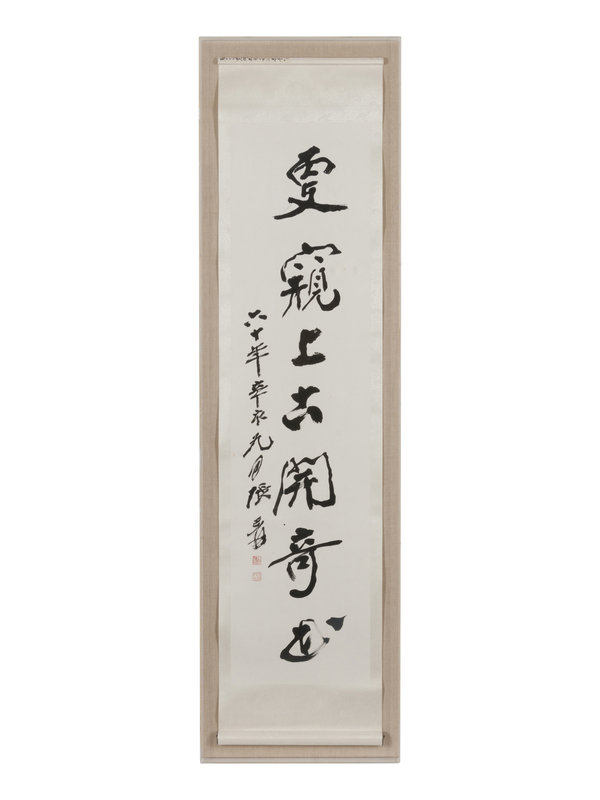 更窺上古開奇
六十年辛亥九月張爰